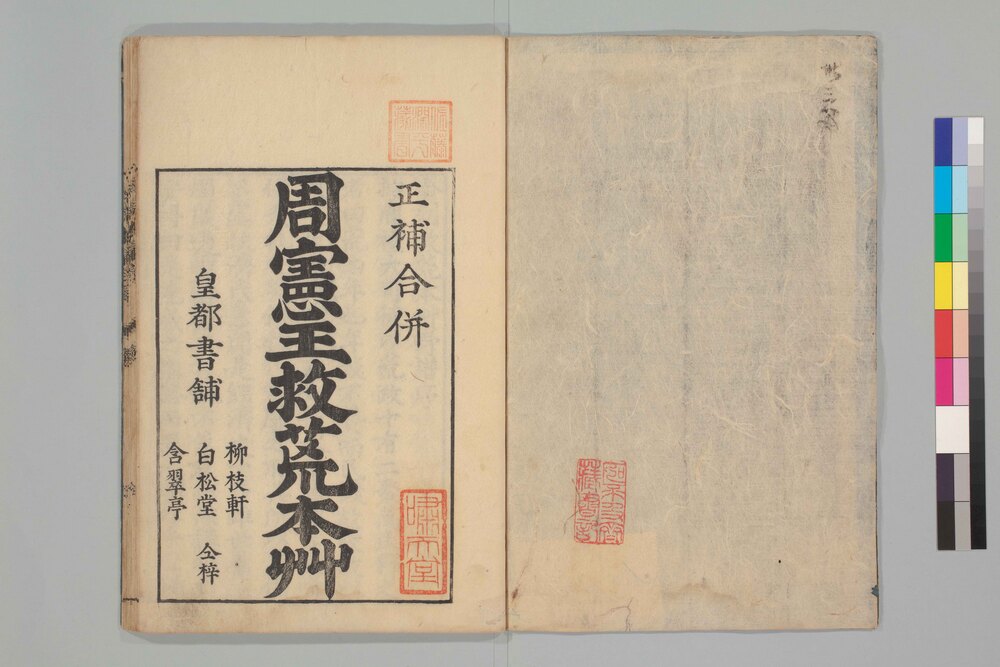 正補合併
周憲王救荒本艸
皇都書舗
柳枝軒
白松堂
含翠亭
仝梓